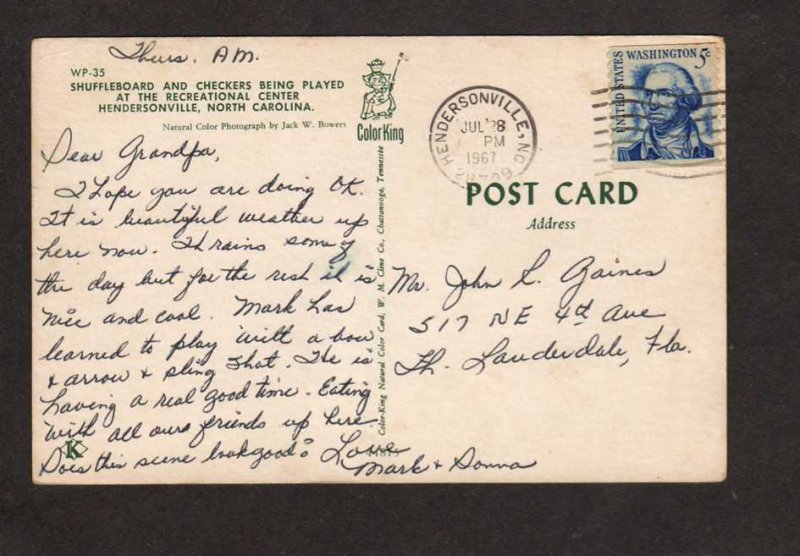 Thurs. AM.
WP-35
SHUFFLEBOARD AND CHECKERS BEING PLAYED
AT THE RECREATIONAL CENTER
HENDERSONVILLE, NORTH CAROLINA.
Natural Color Photograph by Jack W. Bowers
ColorKing
Dear Grandpa,
I hope you are doing OK.
It is beautiful weather up
here now. It rains some of
the day but for the rest it is
nice and cool. Mark has
learned to play with a bow
+ arrow + sling shot. He is
having a real good time. Eating
with all our friends up here.
Does this scene look good? Love
Mark + Donna
K
Color-King Natural Color Card, W. M. Cline Co., Chattanooga, Tennessee
HENDERSONVILLE, NC
JUL 28
PM
1967
UNITED STATES
WASHINGTON 5c
POST CARD
Address
Mr. John L. Gaines
517 NE 4th Ave
Ft. Lauderdale, Fla.